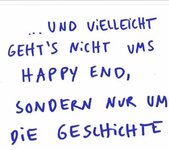 ... UND VIELLEICHT
GEHT'S NICHT UMS
HAPPY END,
SONDERN NUR UM
DIE GESCHICHTE